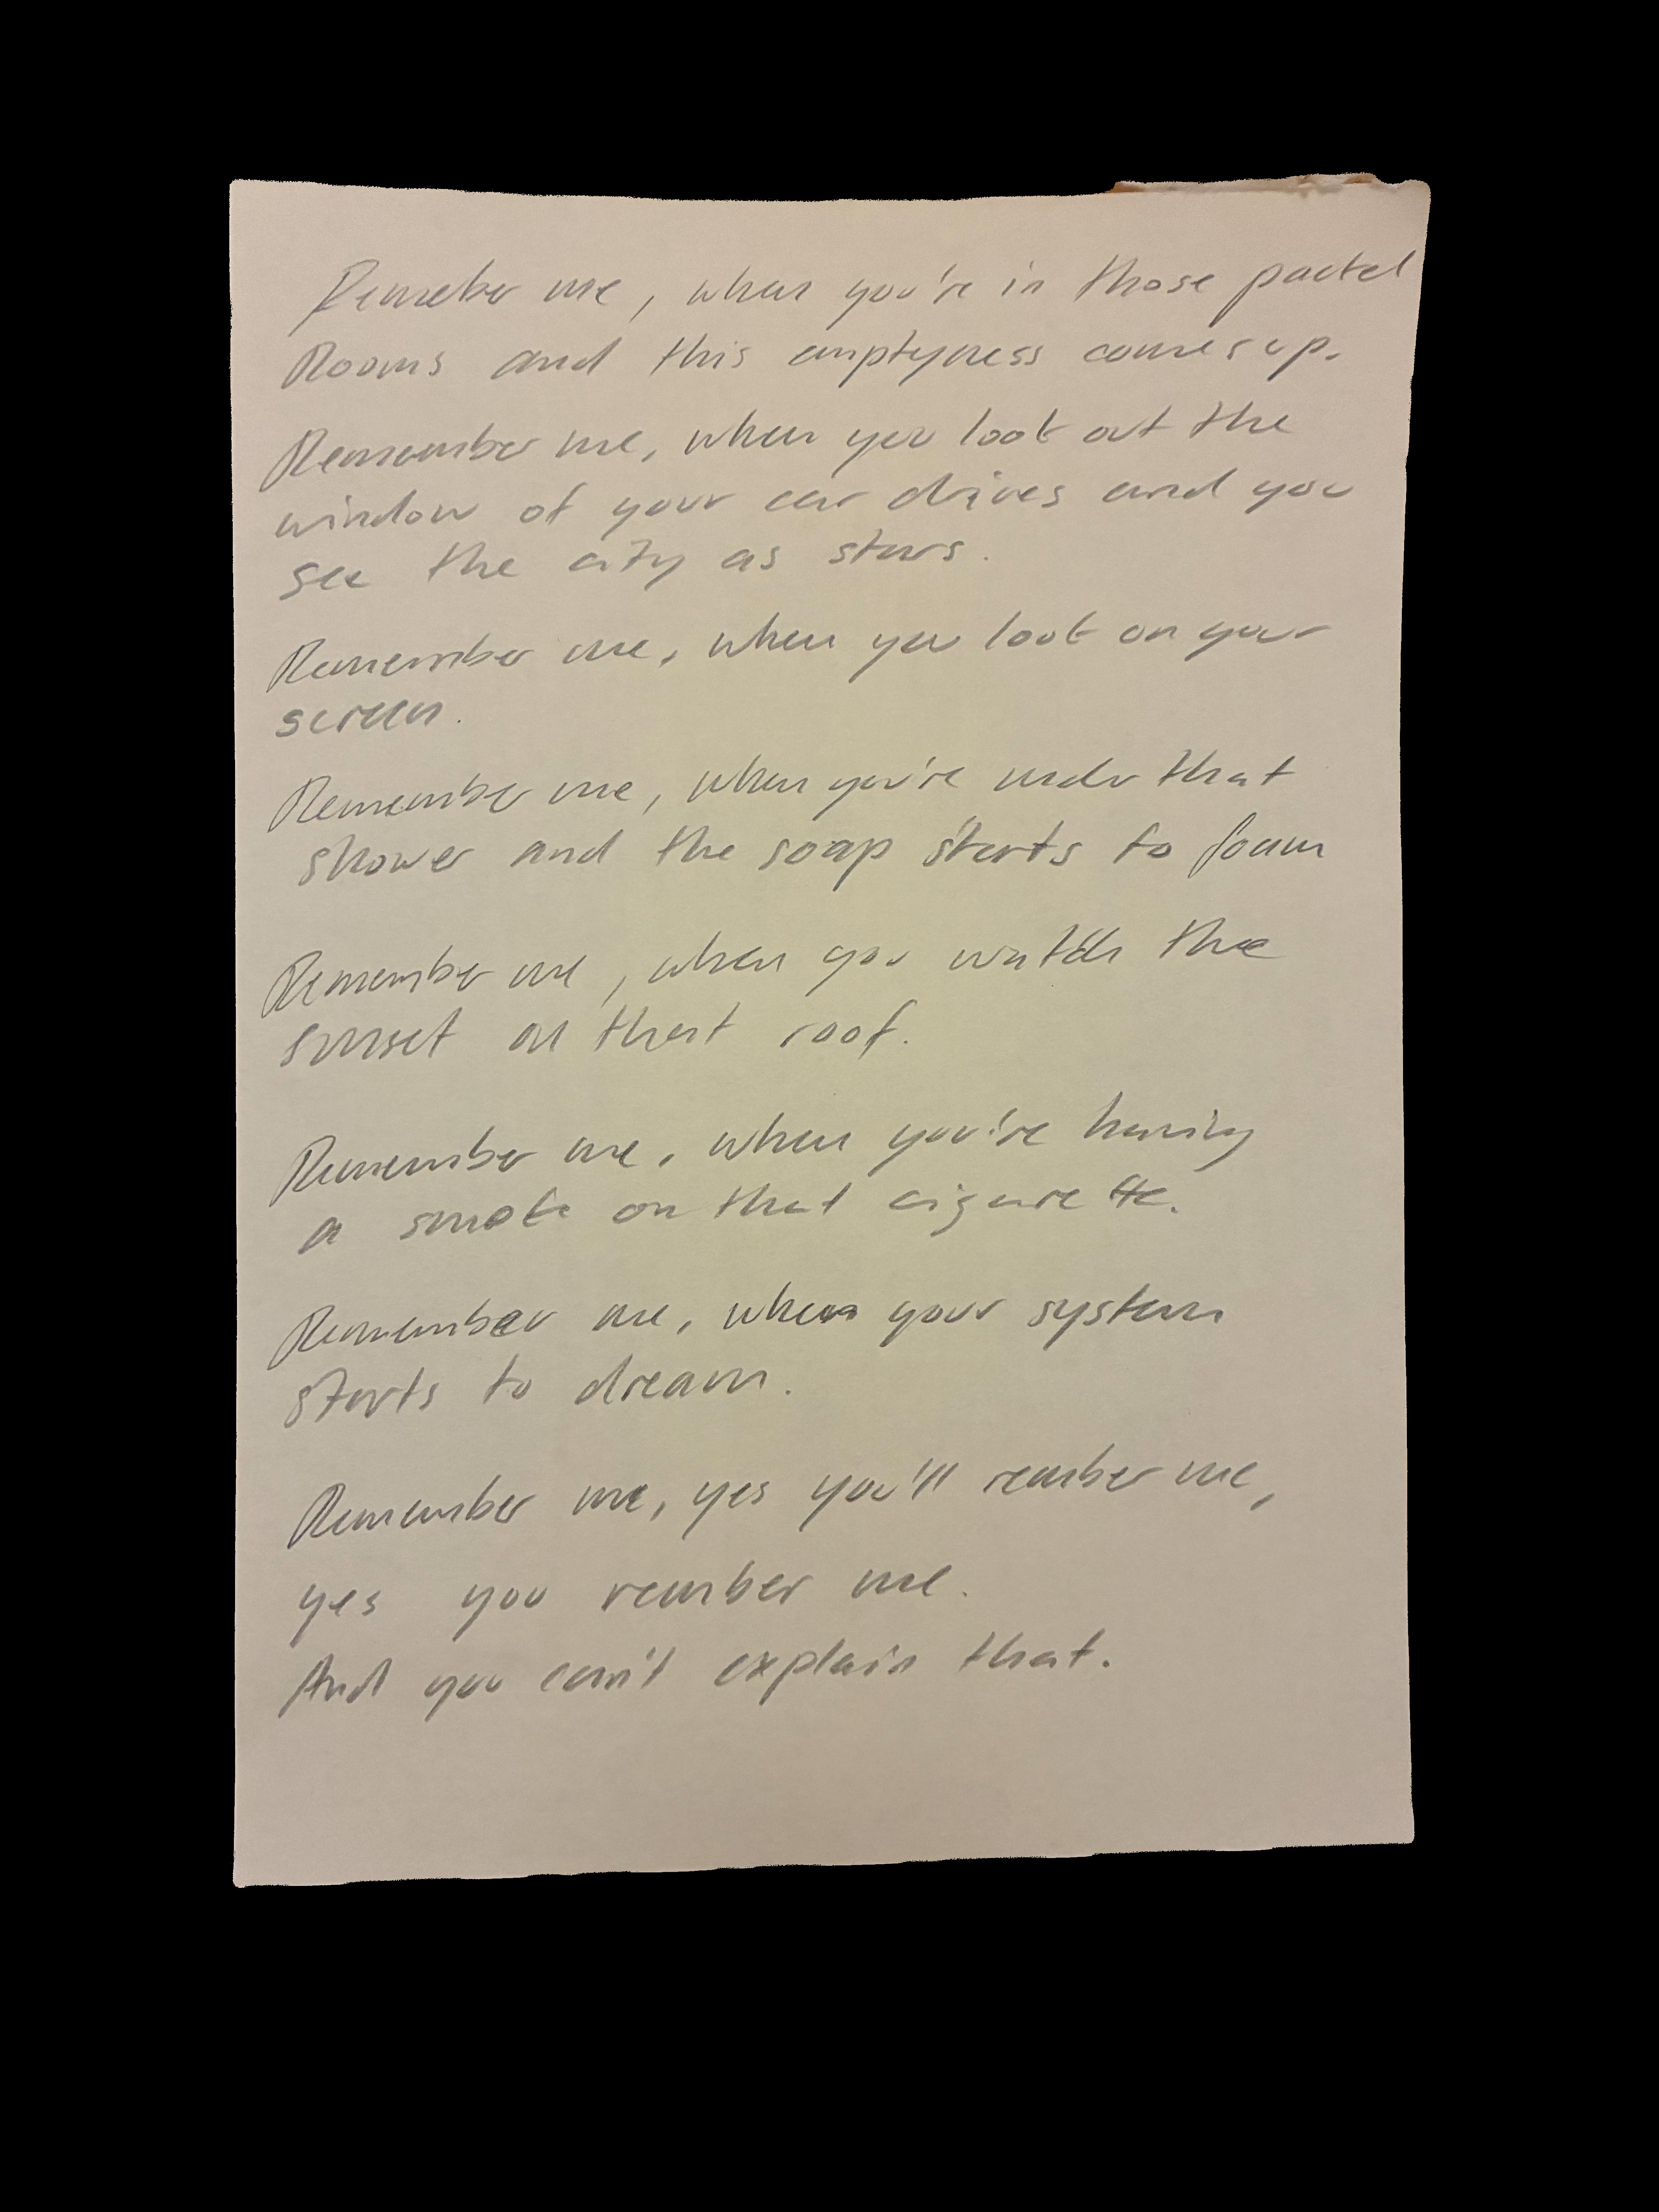 Remeber me, when you're in those pactel
Rooms and this emptyness comes up.
Remember me, when you look out the
window of your car drives and you
see the city as stars.
Remember me, when you look on your
screen.
Remember me, when you're under that
shower and the soap starts to foam
Remember me, when you watch the
sunset on that roof.
Remember me, when you're having
a smoke on that cigarette.
Remember me, when your system
starts to dream.
Remember me, yes you'll rember me,
yes you rember me.
And you can't explain that.